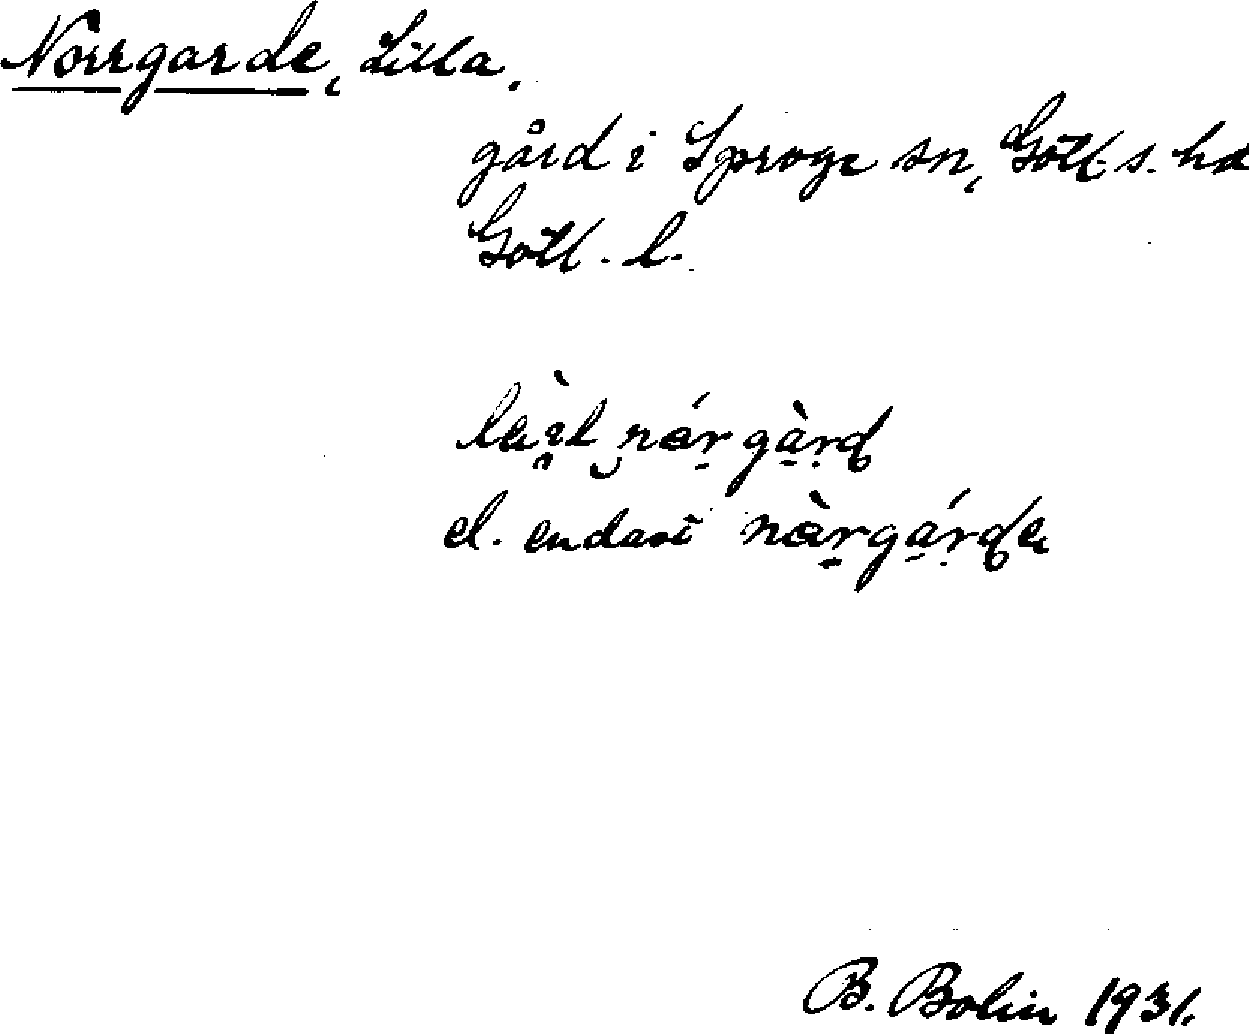 Norrgarde, Lilla.
gård i Sproge sn, Gotl. s. hd
Gotl. l.
el. endast
B. Bolin 1931.